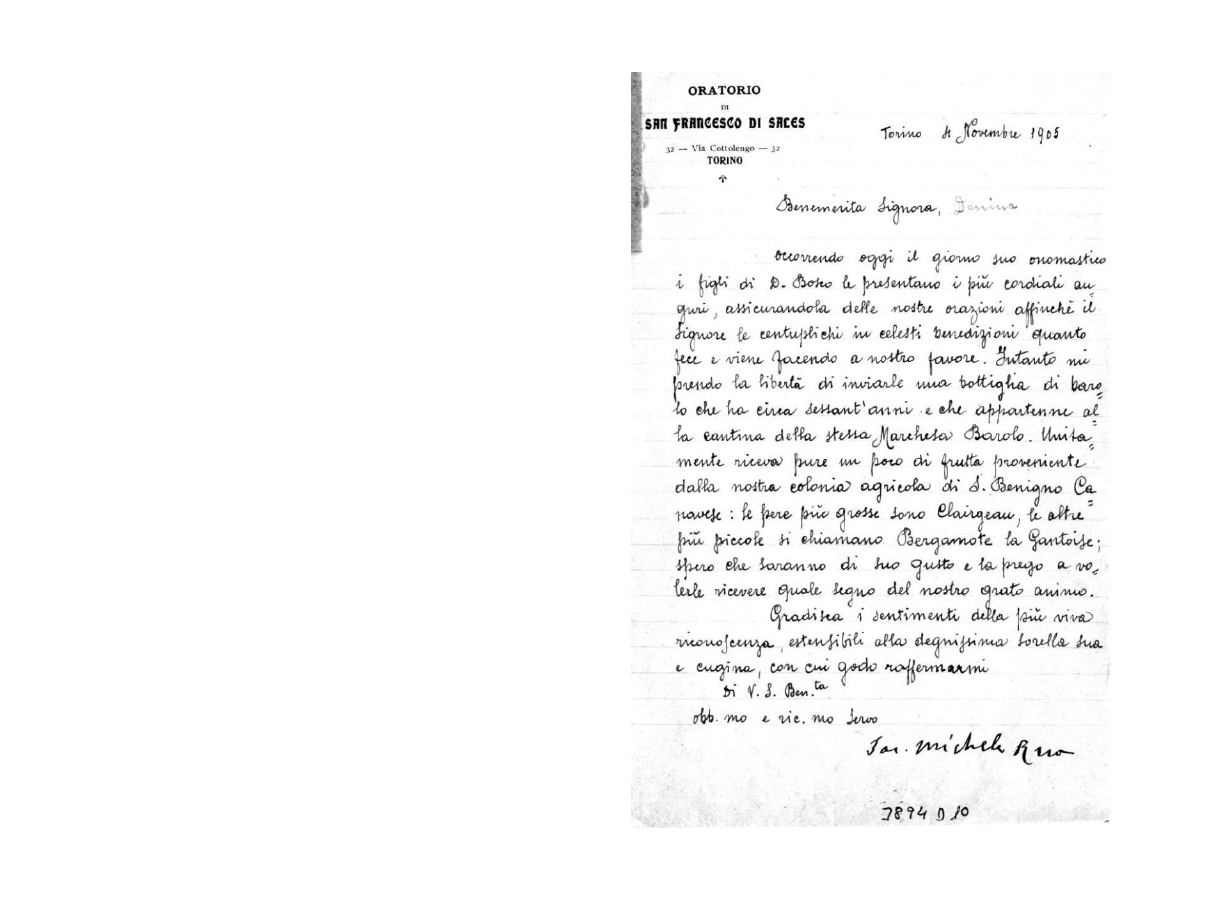 ORATORIO
DI
SAN FRANCESCO DI SALES
32 — Via Cottolengo — 32
TORINO
Torino 4 Novembre 1905
Benemerita Signora, Denina
Occorrendo oggi il giorno suo onomastico
i figli di D. Bosco le presentano i più cordiali au=
guri, assicurandola delle nostre orazioni affinchè il
Signore le centuplichi in celesti benedizioni quanto
fece e viene facendo a nostro favore. Intanto mi
prendo la libertà di inviarle una bottiglia di baro=
lo che ha circa sessant'anni e che appartenne al=
la cantina della stessa Marchesa Barolo. Unita=
mente riceva pure un poco di frutta proveniente
dalla nostra colonia agricola di S. Benigno Ca=
navese: le pere più grosse sono Clairgeau, le altre
più piccole si chiamano Bergamote la Gantoise;
spero che saranno di suo gusto e la prego a vo=
lerle ricevere quale segno del nostro grato animo.
Gradisca i sentimenti della più viva
riconoscenza, estensibili alla degnissima sorella sua
e cugina, con cui godo raffermarmi
Di V. S. Ben.ta
obb.mo e ric.mo servo
Sac. Michele Rua
3894 D 10